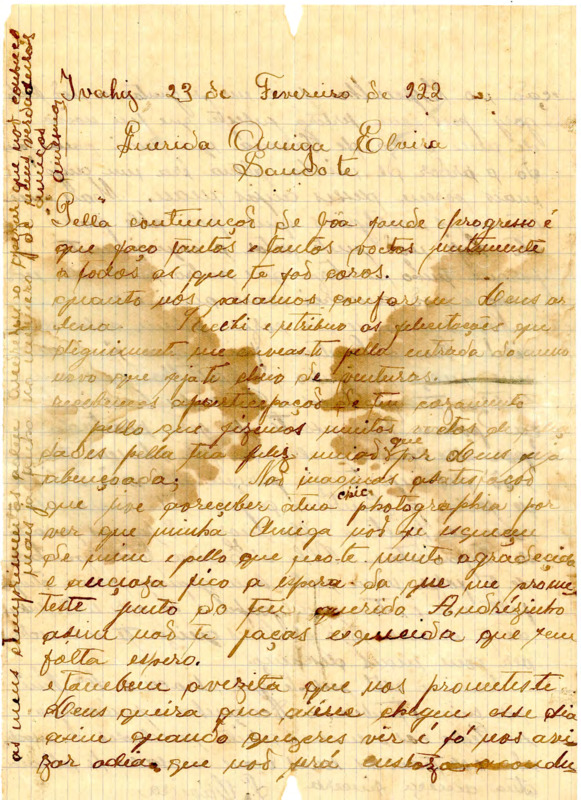 Ivahy 23 de Fevereiro de 922
Querida Amiga Elvira
Saudo te
Pella continuaçoõ de bôa saude e progresso é
que faço tantos e tantos voctos juntamente
a todos os que te saõ caros.
quanto nos pasamos conforme Deus or
dena e retribuo as felicitações que
me enveaste pella entrada do anno
novo que seja te cheio de venturas
recebemos a participaçoõ de teu cazamento
pello que fizemos muitos voctos de
dades pella tua feliz que por Deus seja
abençoada. Naõ imaginas a satisfaçoõ
que tive a receber a tua photographia por
ver que minha Amiga naõ se
de mim e pello que fico te muito agradecida
e ancioza fico a espera da que me prome
teste junto do teu querido Andrézinho
asim naõ te faças esquecida que sem
falta espero.
e tambem a vezita que nos prometeste
Deus queira que chegue esse dia
asim quando quezeres vir é só nos avi
zar o dia que naõ será